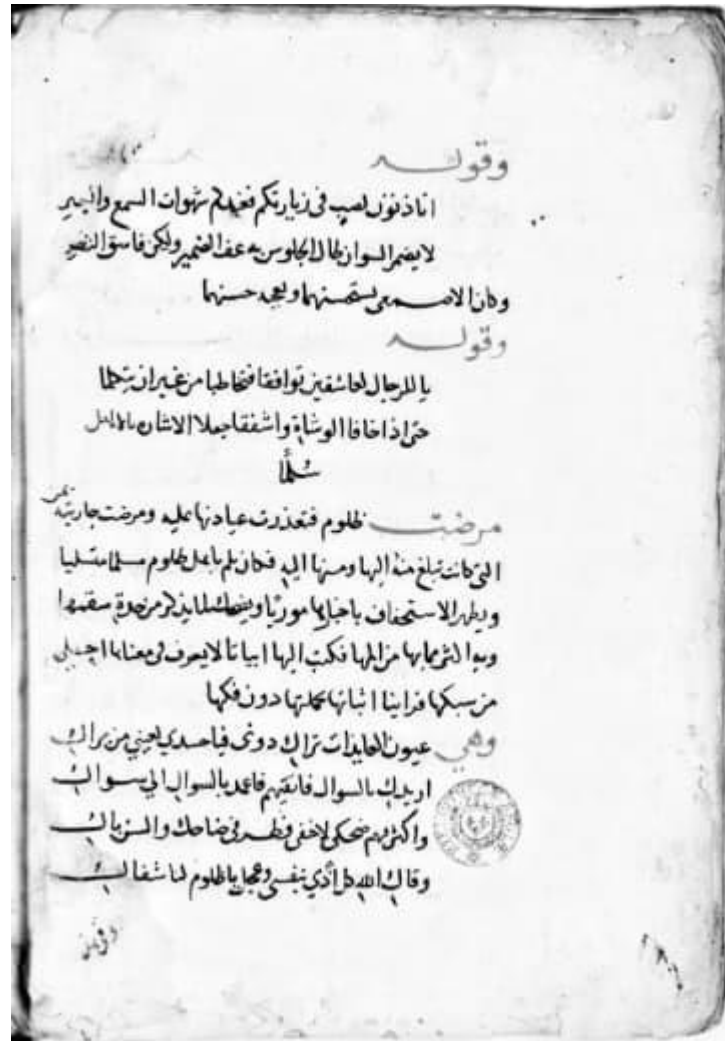 وقوله
اتاذنون لصب في زيارتكم فعندكم شهوات السمع والبصر
لا يضمر السوان طال الجلوس به عف الضمير ولكن فاسق النضر
وكان الاصمعي يستحسنهما ويعجبه حسنهما
وقوله
يا للرجال لعاشقين توافقا فتخاطبا من غير ان يتكلما
حتى اذا خافا الوشاة واشفقا جعلا الاشارة بالانامل
سُلّما
مرضت ظلوم فتعذرت عيادتها عليه ومرضت جاريته
التي كانت تبلغ منه إليها ومنها اليه فكان يلم باهل ظلوم مسلما متسليا
ويظهر الاستخفاف باخبارها موريا ويضحك لما يذكر من شدة سقمها
وبه اكثر مما بها من المها فكتب اليها ابياتا لا يعرف في معناها اجلى
من سبكها فراينا اثباتها بجملتها دون فكها
وهي عيون العايدات تراك دوني فيا حسدي لعيني من يراك
اريدك بالسوال فاتقيهم فاعمد بالسوال الي سواك
واكثر بينهم ضحكي لاخفي فظهري ضاحك والسن باك
وقاك الله كل أذي بنفسي وعجل يا ظلوم لنا شفاك